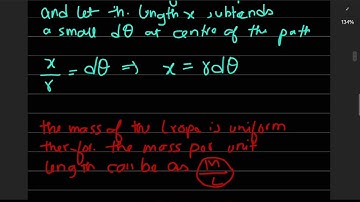 and let th. length x subtends
a small dθ at centre of the path
x/r = dθ ⇒ x = rdθ
the mass of the (rope is uniform
ther for. the mass por unit
length can be as M/L
134%